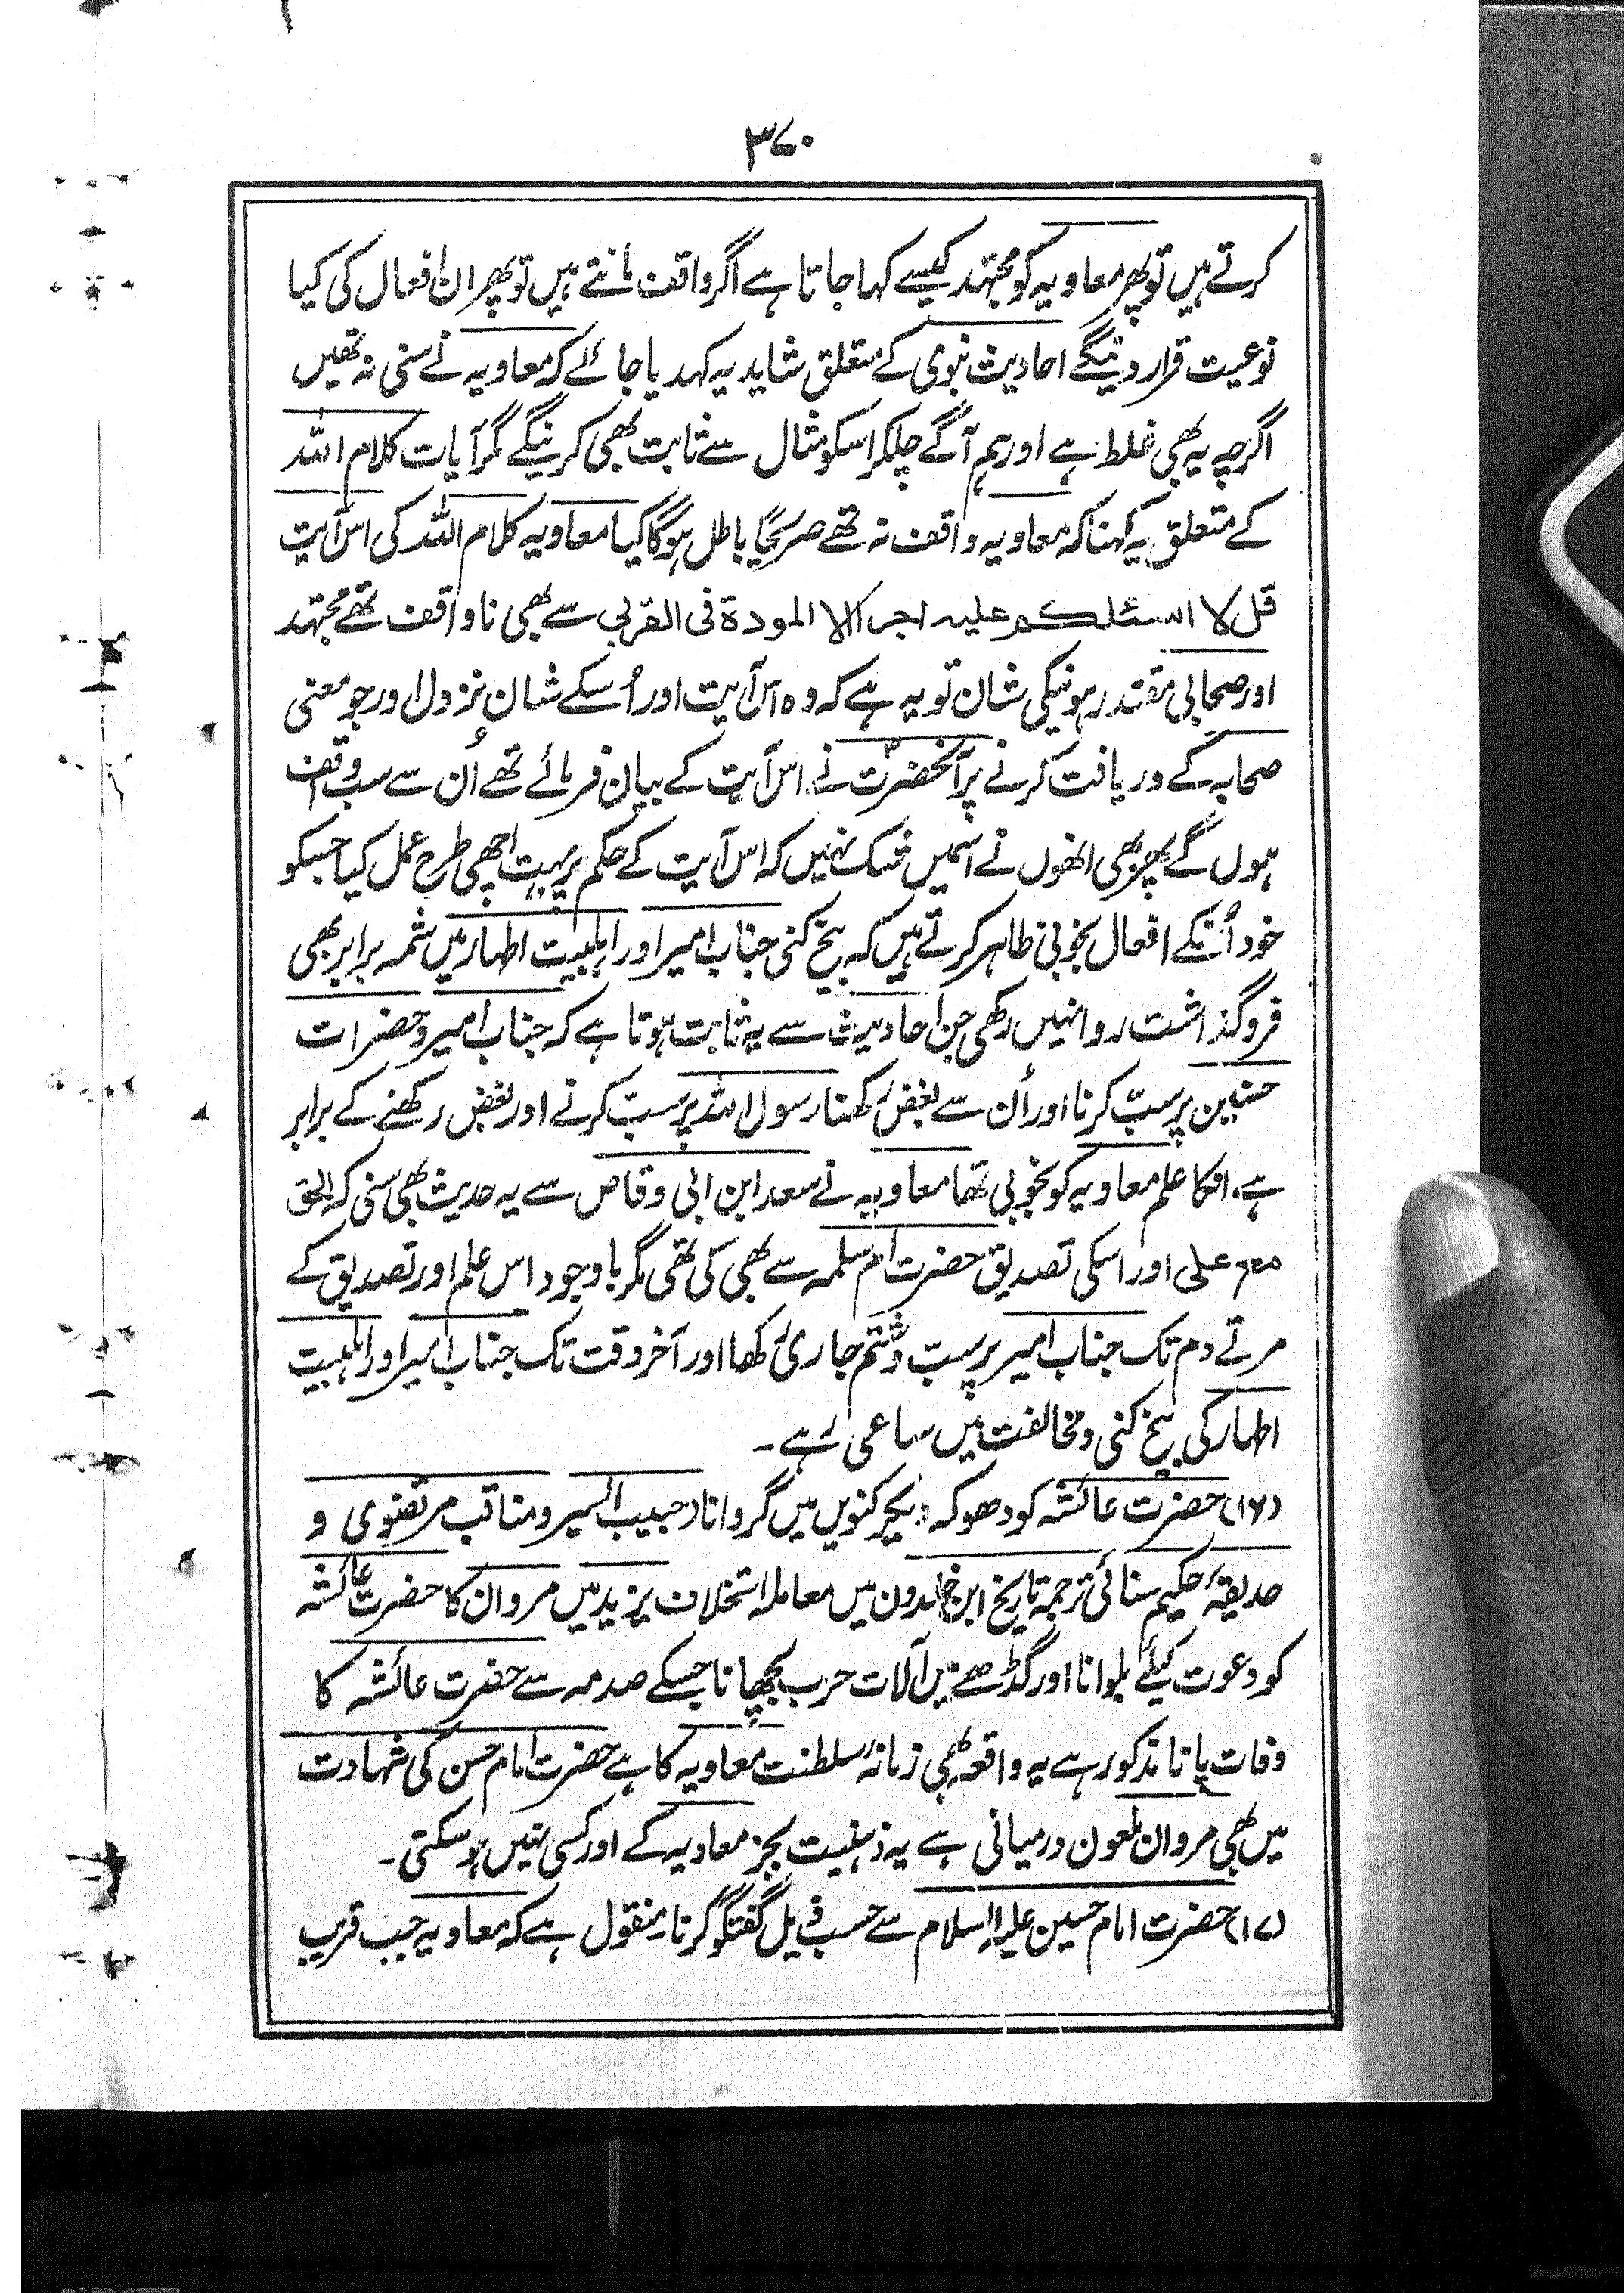 ۳۷۰
کرتے ہیں تو پھر معاویہ کو مجتہد کیسے کہا جاتا ہے اگر واقف مانتے ہیں تو پھر ان افعال کی کیا
نوعیت قرار دینگے احادیث نبوی کے متعلق شاید یہ کہدیا جائے کہ معاویہ نے سنی نہ تھیں
اگرچہ یہ بھی غلط ہے اور ہم آگے چلکر اسکو مثال سے ثابت بھی کرینگے مگر آیات کلام اللہ
کے متعلق یہ کہنا کہ معاویہ واقف نہ تھے صریحاً باطل ہوگا کیا معاویہ کلام اللہ کی اس آیت
قل لا اسئلکم علیہ اجرا الا المودۃ فی القربی سے بھی ناواقف تھے مجتہد
اور صحابی مقتدر ہونیکی شان تو یہ ہے کہ وہ اس آیت اور اُسکے شان نزول اور جو معنی
صحابہ کے دریافت کرنے پر آنحضرت نے اس آیت کے بیان فرمائے تھے اُن سے سب واقف
ہوں گے پھر بھی انھوں نے اسمیں شک نہیں کہ اس آیت کے حکم پر بہت اچھی طرح عمل کیا جسکو
خود اُنکے افعال بخوبی ظاہر کرتے ہیں کہ بیخ کنی جناب امیر اور اہلبیت اطہار میں شمہ برابر بھی
فروگذاشت روا نہیں رکھی جن احادیث سے یہ ثابت ہوتا ہے کہ جناب امیر و حضرات
حسنین پر سبّ کرنا اور اُن سے بغض رکھنا رسول اللہ پر سب کرنے اور بغض رکھنے کے برابر
ہے، انکا علم معاویہ کو بخوبی تھا معاویہ نے سعد ابن ابی وقاص سے یہ حدیث بھی سنی کہ الحق
مع علی اور اسکی تصدیق حضرت ام سلمہ سے بھی کی تھی مگر باوجود اس علم اور تصدیق کے
مرتے دم تک جناب امیر پر سبّ و شتم جاری رکھا اور آخر وقت تک جناب امیر اور اہلبیت
اطہار کی بیخ کنی و مخالفت میں ساعی رہے۔
(۱۶) حضرت عائشہ کو دھوکہ دیکر کنویں میں گروانا (حبیب السیر و مناقب مرتضوی و
حدیقۂ حکیم سنائی ترجمہ تاریخ ابن خلدون میں معاملہ استخلاف یزید میں مروان کا حضرت عائشہ
کو دعوت کیلئے بلوانا اور گڈھے میں آلات حرب بچھانا جسکے صدمہ سے حضرت عائشہ کا
وفات پانا مذکور ہے یہ واقعہ بھی زمانۂ سلطنت معاویہ کا ہے حضرت امام حسن کی شہادت
میں بھی مروان ملعون درمیانی ہے یہ ذہنیت بجز معاویہ کے اور کسی نہیں ہوسکتی۔
(۱۷) حضرت امام حسین علیہ السلام سے حسب ذیل گفتگو کرنا، منقول ہے کہ معاویہ جب قریب